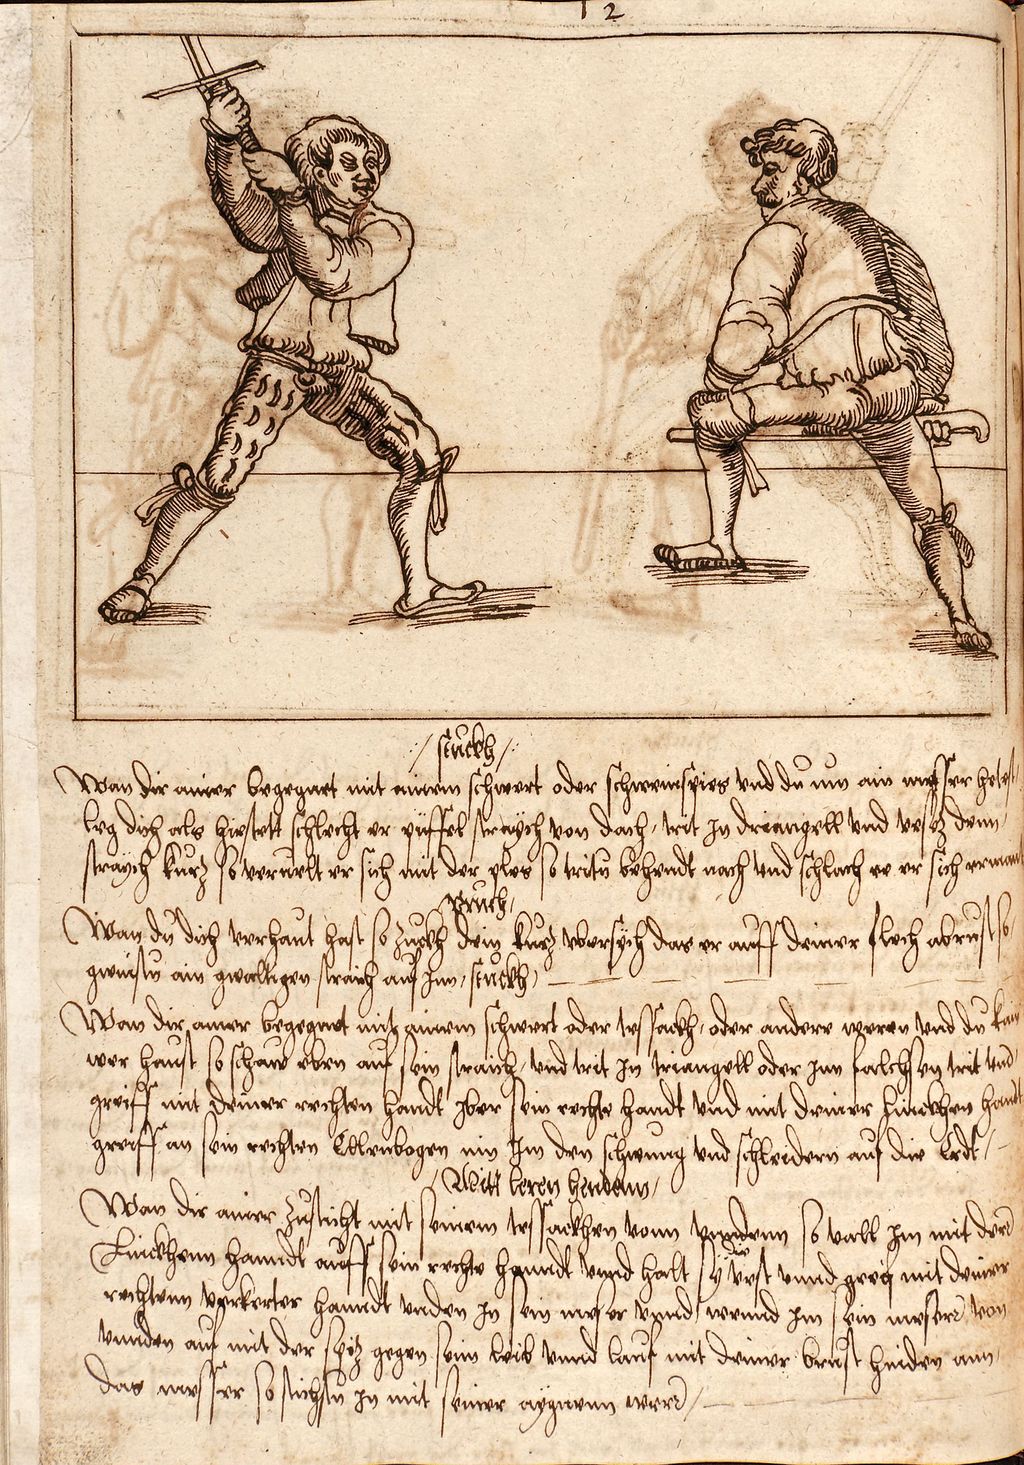 12
/ stuckh /
Wan dir ainer begegnet mit ainem schwert oder schweinspies und du nun ain messer hetest /
leg dich als hietest schlecht er streych von dach / trit in driangell und versez denn /
straych kurz so veruelt er sich mit der so tritu behendt nach und schlach ee er sich ermant
Bruch /
Wan du dich verhaut hast so zuckh dein kurz ubersych das er auff deiner flech abrust so
gwinstu ain gwaltigen straich auf inn / stuckh /
Wan dir ainer begegnet mit ainem schwert oder tessackh / oder andere weren und du kain
wer haust so schau eben auf sein straich / und trit in triangell oder inn falchsen trit und
greiff mit deiner rechten handt iber sein rechte handt und mit deiner linckhen handt
greiff an sein rechten Ellenbogen nim im den schwung und schleidern auf die Erdt /
/ Mitt leren henden /
Wan dir ainer zusticht mit seinem tessackhen vonn unndenn so vall im mit der
Linckhenn hanndt auff sein rechte hanndt unnd halt sy vest unnd greiff mit deiner
rechtenn verkerter hanndt unden in sein messer unnd wennd im sein messer von
unnden auf mit der spiz gegen seim leib unnd lauf mit deiner brust hinden ann
das messer so stichstu in mit seiner aygnenn weer /